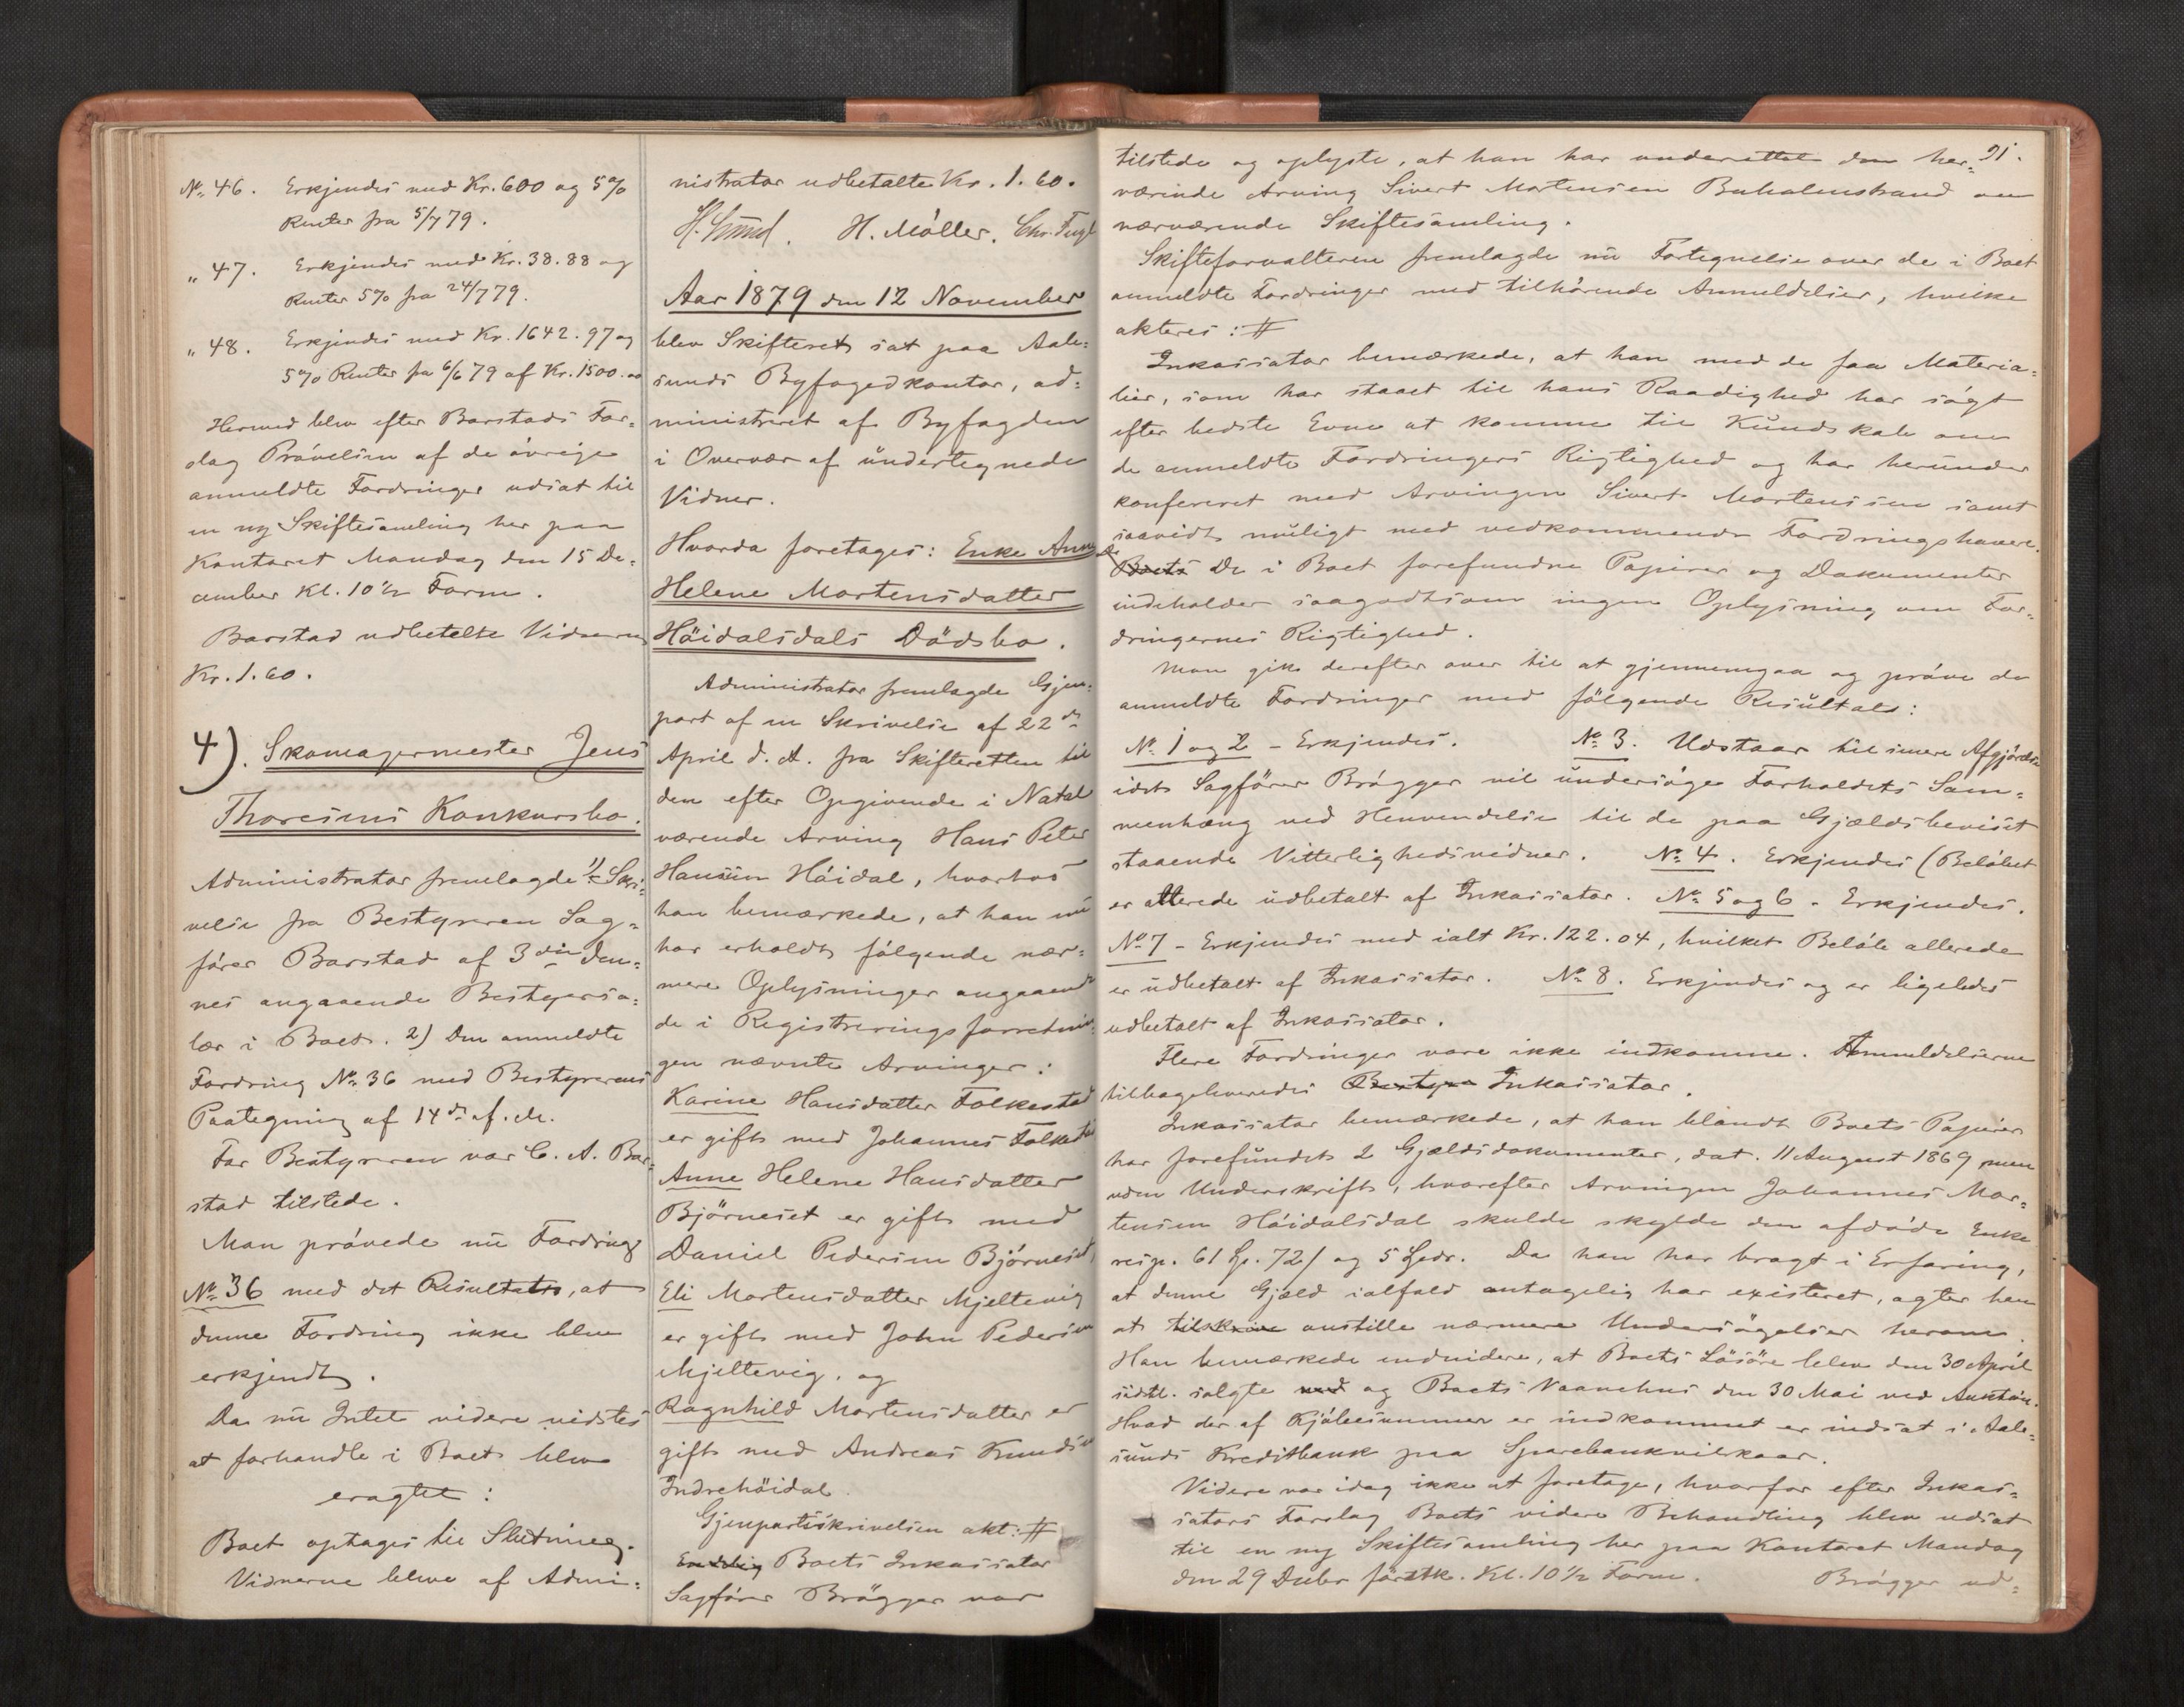 No 46. Erkjendes med Kr. 600 og 5%
Renter fra 5/7 79.
" 47. Erkjendes med Kr. 38.88 og
Renter 5% fra 24/7 79.
" 48. Erkjendes med Kr. 1642.97 og
5% Renter fra 6/6 79 af Kr. 1500.00
Hermed blev efter Barstads For-
slag Prøvelsen af de øvrige
anmeldte Fordringer udsat til
en ny Skiftesamling her paa
Kontoret Mandag den 15 De-
cember Kl. 10 1/2 Form.
Barstad udbetalte Vidnerne
Kr. 1.60.
4). Skomagermester Jens
Thoresens Konkursbo.
Administrator fremlagde 1/ Skri-
velse fra Bestyreren Sag-
fører Barstad af 3die den-
nes angaaende Bestyrersa-
lær i Boet. 2) Den anmeldte
Fordring No 36 med Bestyrerens
Paategning af 14de s. M.
For Bestyreren var C. A. Bar-
stad tilstede.
Man prøvede nu Fordring
No 36 med det Resultat, at
denne Fordring ikke blev
erkjendt.
Da nu Intet videre vidstes
at forhandle i Boet blev
eragtet:
Boet optages til Slutning.
Vidnerne bleve af Admi-
nistrator udbetalte Kr. 1.60.
H. Møller.
Aar 1879 den 12 November
blev Skifteret sat paa Aale-
sunds Byfogedkontor, ad-
ministreret af Byfogden
i Overvær af undertegnede
Vidner.
Hvorda foretages: Enke Anne
Helene Mortensdatter
Höidalsdals Dødsbo.
Administrator fremlagde Gjen-
part af en Skrivelse af 22de
April d. A. fra Skifteretten til
den efter Opgivende i Natal
værende Arving Hans Peter
Hansen Høidal, hvorhos
han bemærkede, at han nu
har erholdt følgende nær-
mere Oplysninger angaaende
de i Registreringsforretnin-
gen nævnte Arvinger:
Karine Hansdatter Folkestad
er gift med Johannes Folkestad
Anne Helene Hansdatter
Bjørneset er gift med
Daniel Pedersen Bjørneset,
Eli Mortensdatter Mjeltevig
er gift med John Pedersen
Mjeltevig, og
Ragnhild Mortensdatter er
gift med Andreas Knudsen
Indrehöidal.
Gjenpartsskrivelsen akt: #
Endelig Boets Inkassator
Sagfører Brøgger var
91.
tilstede og oplyste, at han har underettet den her-
værende Arving Sivert Mortensen Buholmstrand om
nærværende Skiftesamling.
Skifteforvalteren fremlagde nu Fortegnelse over de i Boet
anmeldte Fordringer med tilhørende Anmeldelser, hvilke
akteres: #
Inkassator bemærkede, at han med de faa Materia-
lier, som har staaet til hans Raadighed har søgt
efter bedste Evne at komme til Kundskab om
de anmeldte Fordringers Rigtighed og har herunder
konfereret med Arvingen Sivert Mortensen samt
saavidt muligt med vedkommende Fordringshavere.
Boets De i Boet forefundne Papirer og Dokumenter
indeholder saagodtsom ingen Oplysning om For-
dringernes Rigtighed.
Man gik derefter over til at gjennemgaa og prøve de
anmeldte Fordringer med følgende Resultat:
No 1 og 2 - Erkjendes. No 3. Udstaar til senere Afgjørelse
idet Sagfører Brøgger vil undersøge Forholdets Sam-
menhæng ved Henvendelse til de paa Gjældsbeviset
staaende Vitterlighedsvidner. No 4. Erkjendes (Beløbet
er allerede udbetalt af Inkassator. No 5 og 6 - Erkjendes.
No 7 - Erkjendes med ialt Kr. 122.04, hvilket Beløb allerede
er udbetalt af Inkassator. No 8. Erkjendes og er ligeledes
udbetalt af Inkassator.
Flere Fordringer vare ikke indkomne. Anmeldelserne
tilbageleveredes Bestyre Inkassator.
Inkassator bemærkede, at han blandt Boets Papirer
har forefundet 2 Gjældsdokumenter, dat. 11 August 1869, men
uden Underskrift, hvorefter Arvingen Johannes Mor-
tensen Høidalsdal skulde skylde den afdøde Enke
resp. 61 Sp. 72 / og 5 Spdr. Da han har bragt i Erfaring,
at denne Gjæld ialfald antagelig har existeret, agter han
at tilskrive anstille nærmere Undersøgelser herom.
Han bemærkede endvidere, at Boets Løsøre blev den 30 April
sidstl. solgte ved og Boets Vaanehus den 30 Mai ved Auktion.
Hvad der af Kjøbesummen er indkommet er indsat i Aale-
sunds Kreditbank paa Sparebankvilkaar.
Videre var idag ikke at foretage, hvorfor efter Inkas-
sators Forslag Boets videre Behandling blev udsat
til en ny Skiftesamling her paa Kontoret Mandag
den 29 Decbr førstk. Kl. 10 1/2 Form. Brøgger ud-